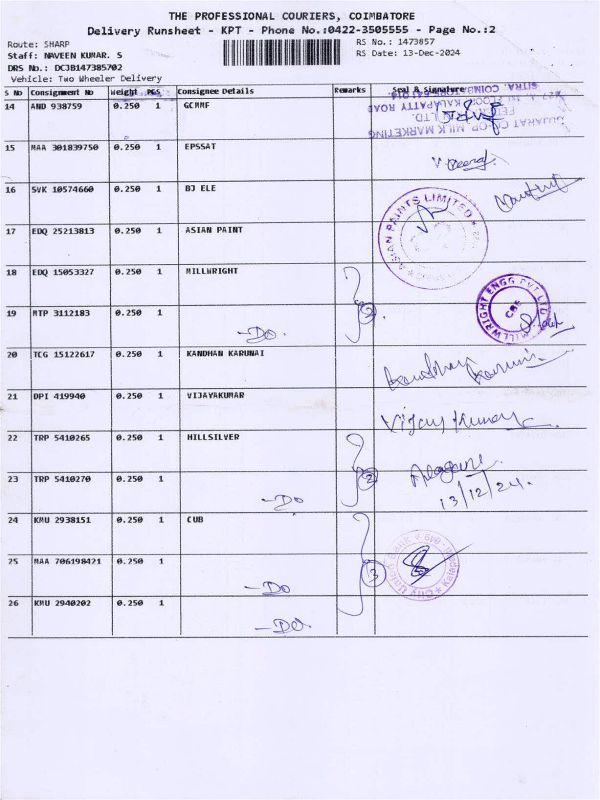 THE PROFESSIONAL COURIERS, COIMBATORE
Delivery Runsheet - KPT - Phone No.:0422-3505555 - Page No.:2
Route: SHARP
RS No.: 1473857
Staff: NAVEEN KUMAR. S
RS Date: 13-Dec-2024
DRS No.: DC3B147385702
Vehicle: Two Wheeler Delivery
S No Consignment No Weight PGS Consignee Details Remarks Seal & Signature
14 AND 938759 0.250 1 GCMMF
GUJARAT CO-OP. MILK MARKETING
15 MAA 301839750 0.250 1 EPSSAT
16 SVK 10574660 0.250 1 BJ ELE
17 EDQ 25213813 0.250 1 ASIAN PAINT
ASIAN PAINTS LIMITED
18 EDQ 15053327 0.250 1 MILLWRIGHT
2
MILLWRIGHT ENGG PVT LTD
CBE
19 MTP 3112183 0.250 1
-Do-
20 TCG 15122617 0.250 1 KANDHAN KARUNAI
21 DPI 419940 0.250 1 VIJAYAKUMAR
Vijay Kumar
22 TRP 5410265 0.250 1 HILLSILVER
2
13/12/24.
23 TRP 5410270 0.250 1
-Do
24 KMU 2938151 0.250 1 CUB
3
25 MAA 706198421 0.250 1
-Do
26 KMU 2940202 0.250 1
-Do